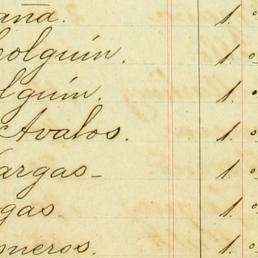 aña. 1.
Holguin. 1.
lguin. 1.
Avalos. 1.
Vargas- 1.
gas 1.
meros. 1.